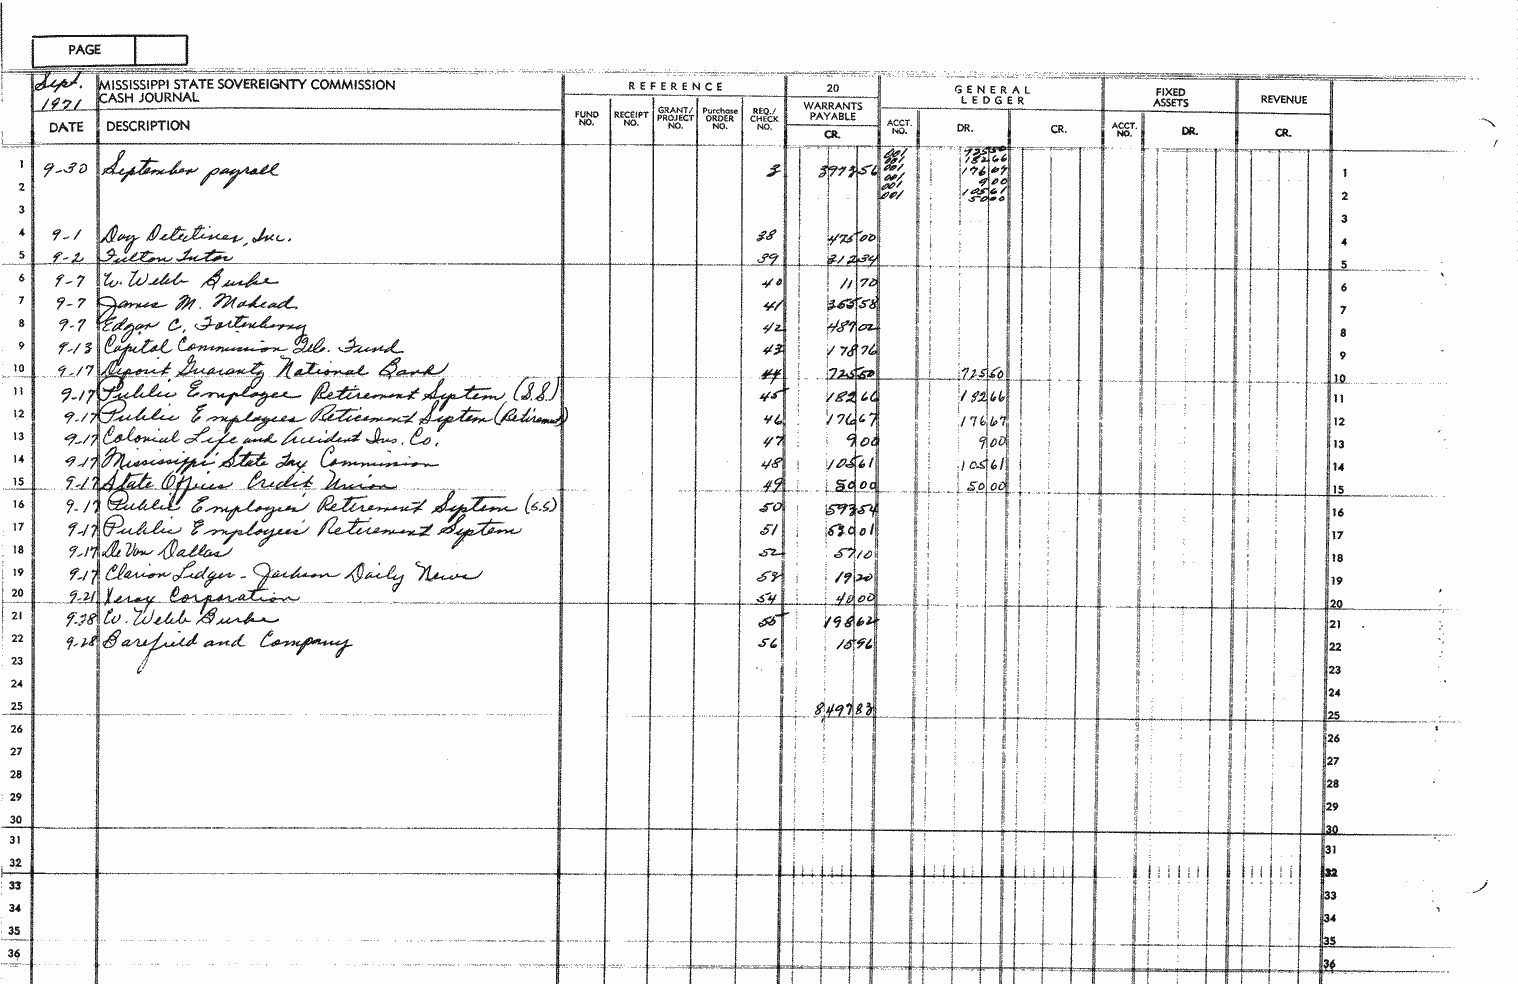 PAGE
Sept. 1971 MISSISSIPPI STATE SOVEREIGNTY COMMISSION
CASH JOURNAL
REFERENCE 20 GENERAL LEDGER FIXED ASSETS REVENUE
DATE DESCRIPTION FUND NO. RECEIPT NO. GRANT/PROJECT NO. Purchase ORDER NO. REQ./CHECK NO. WARRANTS PAYABLE CR. ACCT. NO. DR. CR. ACCT. NO. DR. CR.
001 725 50
001 182 66
1 9-30 September payroll 3 3973 56 001 176 67 1
001 9 00
2 001 105 61 2
001 50 00
3 3
4 9-1 Day Detectives, Inc. 38 475 00 4
5 9-2 Fulton Tutor 39 312 34 5
6 9-7 W. Webb Burke 40 11 70 6
7 9-7 James M. Mohead 41 355 58 7
8 9-7 Edgar C. Fortenberry 42 487 02 8
9 9-13 Capitol Commission Tele. Fund 43 178 76 9
10 9-17 Deposit Guaranty National Bank 44 725 50 725 50 10
11 9-17 Public Employees Retirement System (S.S.) 45 182 66 182 66 11
12 9-17 Public Employees Retirement System (Retirement) 46 176 67 176 67 12
13 9-17 Colonial Life and Accident Ins. Co. 47 9 00 9 00 13
14 9-17 Mississippi State Tax Commission 48 105 61 105 61 14
15 9-17 State Offices Credit Union 49 50 00 50 00 15
16 9-17 Public Employees' Retirement System (S.S) 50 593 54 16
17 9-17 Public Employees' Retirement System 51 530 01 17
18 9-17 De Van Dallas 52 57 10 18
19 9-17 Clarion Ledger - Jackson Daily News 53 19 20 19
20 9-21 Xerox Corporation 54 40 00 20
21 9-28 W. Webb Burke 55 198 62 21
22 9-28 Barefield and Company 56 15 96 22
23 23
24 24
25 8,497 83 25
26 26
27 27
28 28
29 29
30 30
31 31
32 32
33 33
34 34
35 35
36 36